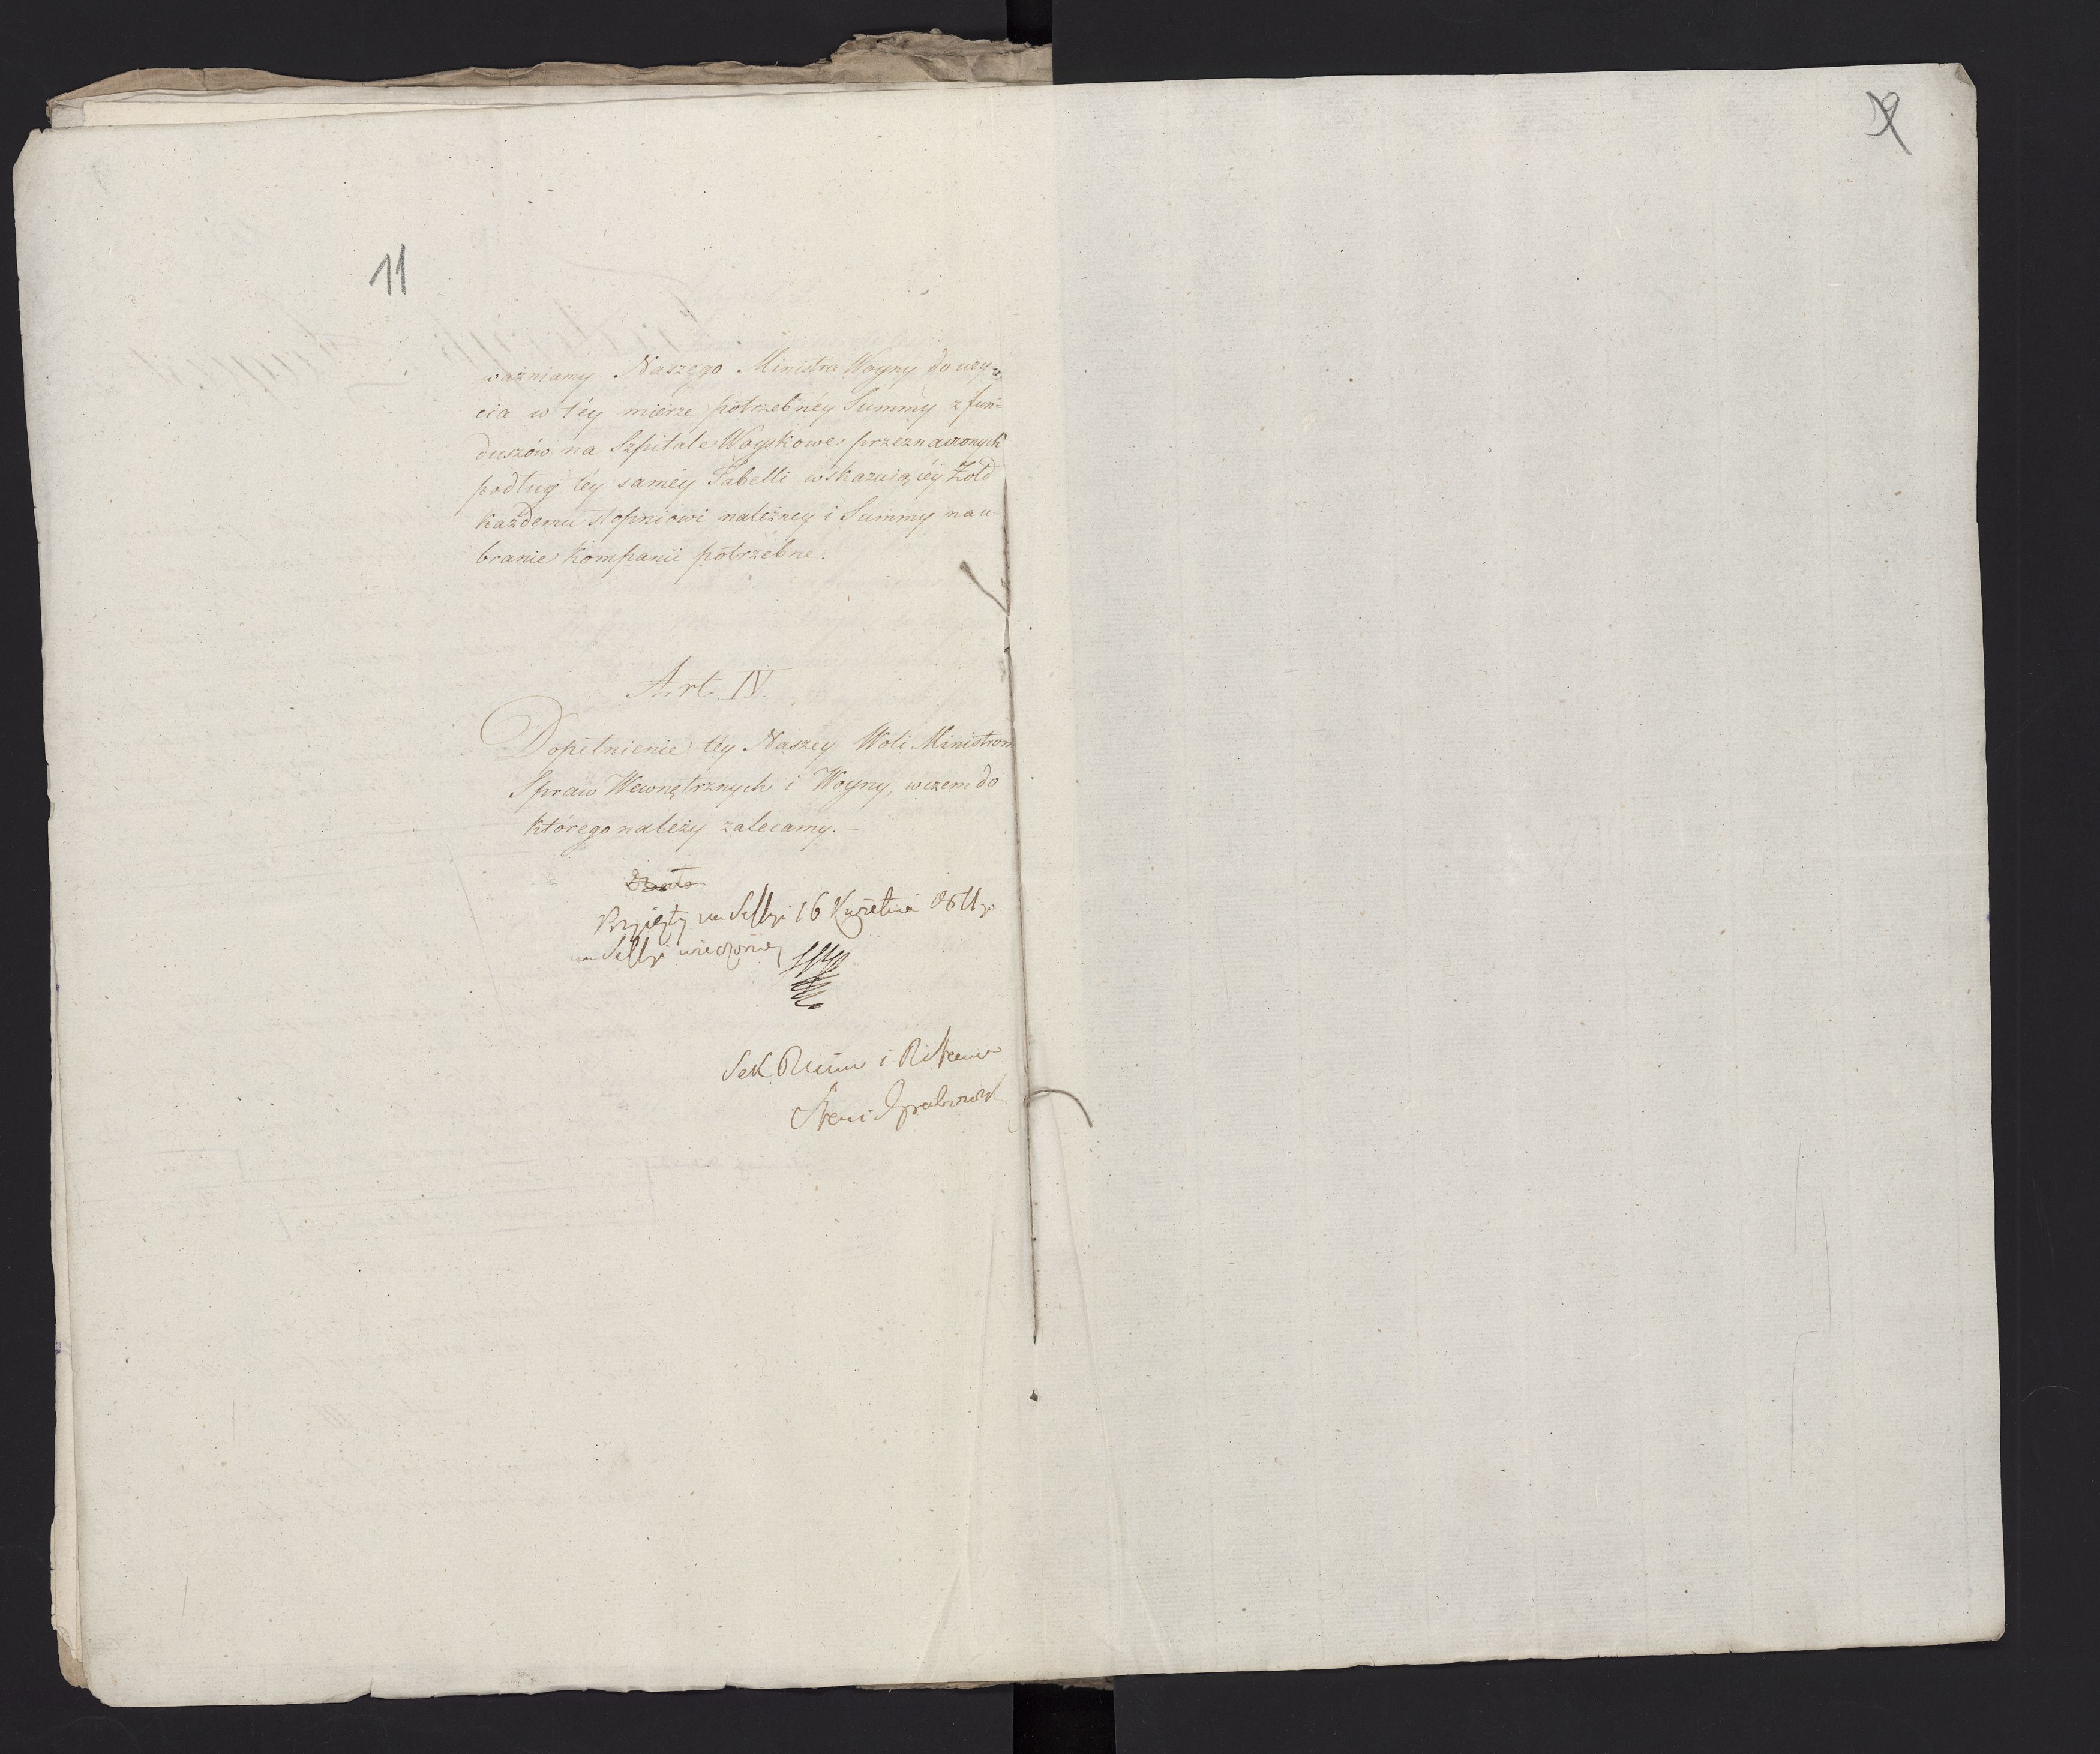 11
ważniamy Naszego Ministra Woyny do uży=
cia w téy mierze potrzebnéy Summy z fun=
duszów na Szpitale Woyskowe przeznaczonych
podług téy saméy Tabelli wskazuiącéy Żołd
każdemu stopniowi należney i Summy na u-
branie kompanii potrzebne.
Art. IV
Dopełnienie téy Naszey Woli Ministrom
Spraw Wewnętrznych i Woyny, wczem do
którego należy zalecamy.—
Przyięty na Sessyi 16 Kwietnia 1811 go
na Sessyi wieczorney
Sek. Rady i
Stani Grabowski